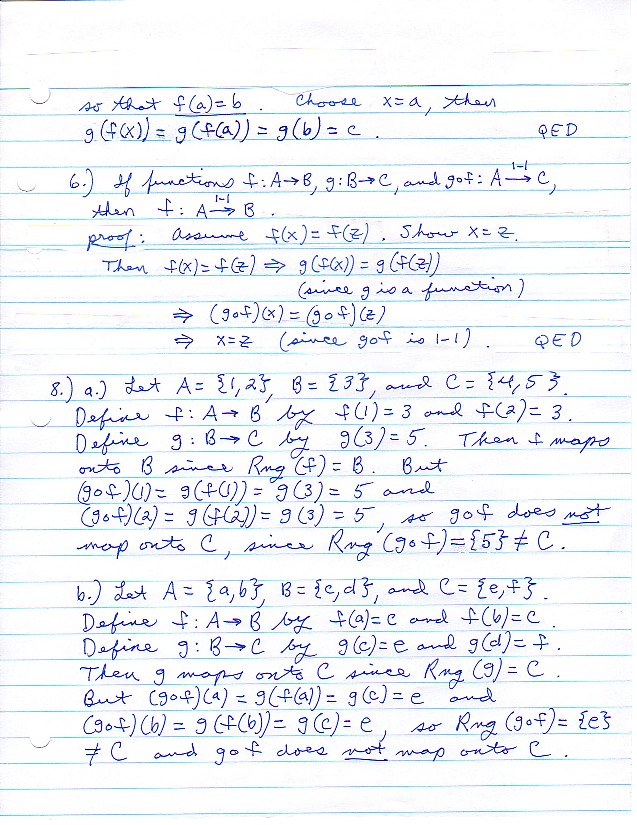 so that f(a)=b . Choose x=a, then
g(f(x)) = g(f(a)) = g(b) = c . QED
6.) If functions f: A→B, g: B→C, and gof: A 1-1→ C,
then f: A 1-1→ B .
proof: Assume f(x)=f(z) . Show x=z.
Then f(x)=f(z) ⇒ g(f(x)) = g(f(z))
(since g is a function)
⇒ (gof)(x) = (gof)(z)
⇒ x=z (since gof is 1-1) . QED
8.) a.) Let A= {1,2}, B= {3}, and C= {4,5}.
Define f: A→ B by f(1)=3 and f(2)=3.
Define g: B→C by g(3)=5. Then f maps
onto B since Rng(f) = B. But
(gof)(1) = g(f(1)) = g(3) = 5 and
(gof)(2) = g(f(2)) = g(3) = 5, so gof does not
map onto C, since Rng(gof)={5} ≠ C.
b.) Let A= {a,b}, B= {c,d}, and C= {e,f}.
Define f: A→B by f(a)=c and f(b)=c .
Define g: B→C by g(c)=e and g(d)=f.
Then g maps onto C since Rng(g) = C .
But (gof)(a) = g(f(a)) = g(c) = e and
(gof)(b) = g(f(b)) = g(c)=e, so Rng(gof)= {e}
≠ C and gof does not map onto C .